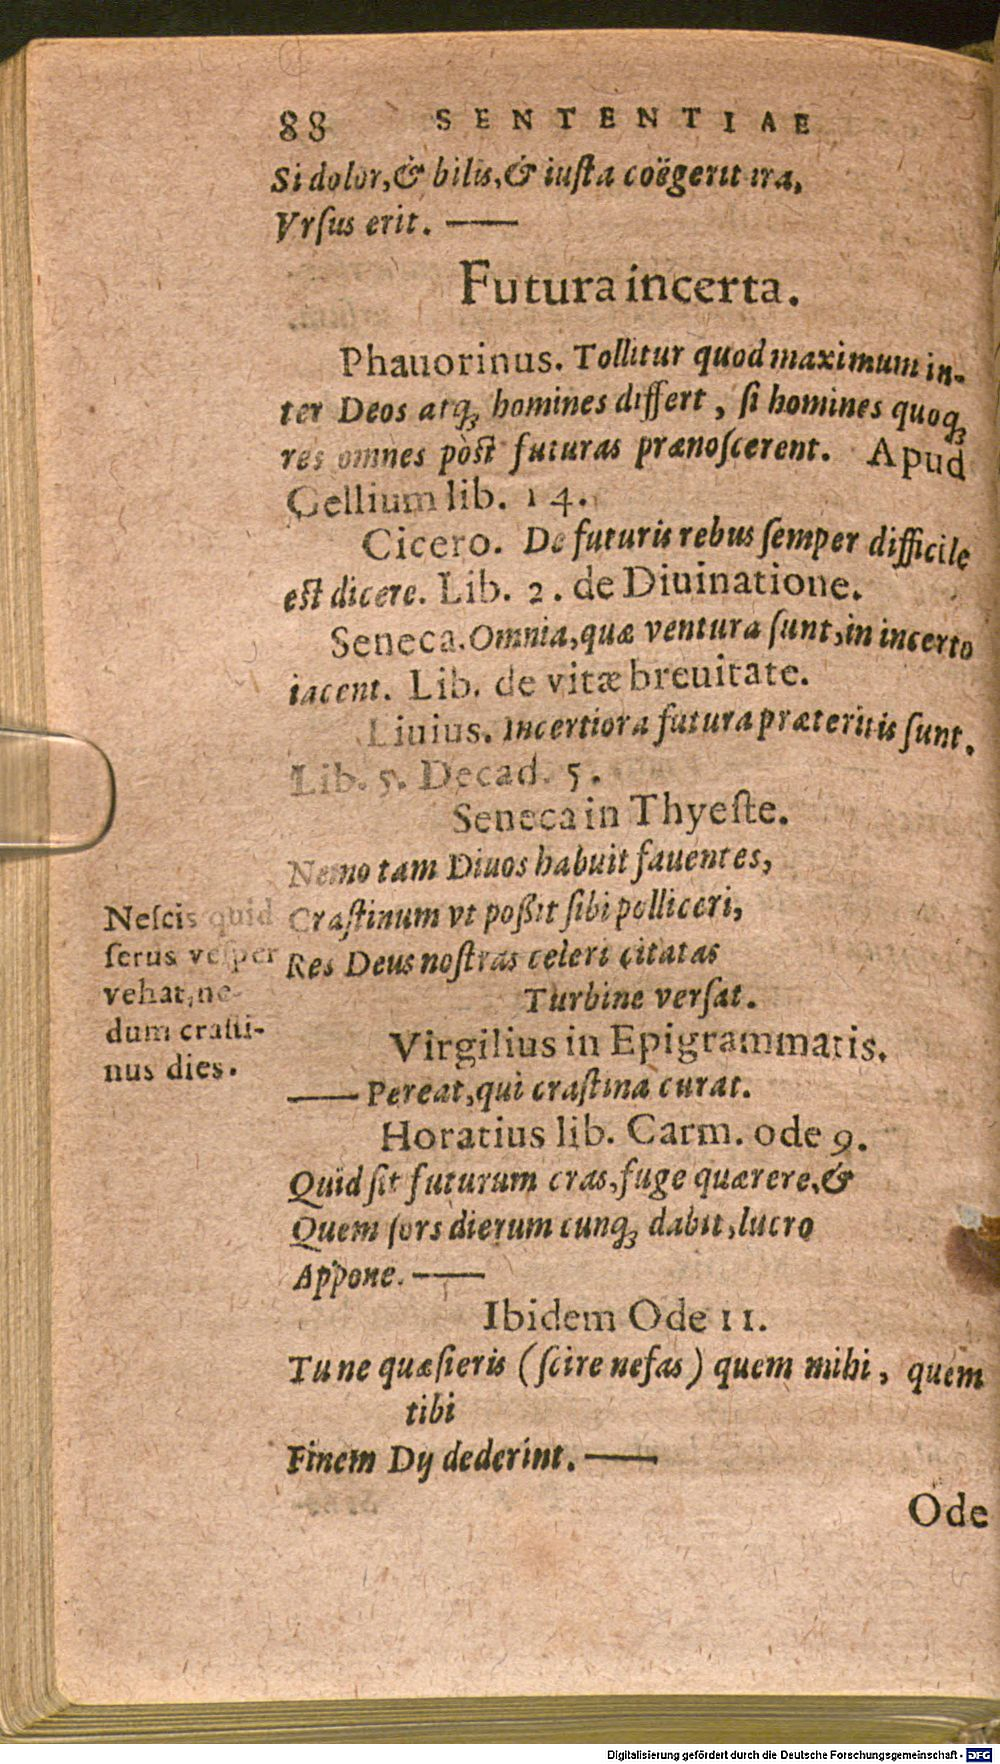 88 SENTENTIAE
Si dolor, & bilis, & iuſta coëgerit ira,
Vrſus erit. ——
Futura incerta.
Phauorinus. Tollitur quod maximum in-
ter Deos atq; homines differt, ſi homines quoq;
res omnes pòst futuras prænoſcerent. Apud
Gellium lib. 14.
Cicero. De futuris rebus ſemper difficile
est dicere. Lib. 2. de Diuinatione.
Seneca. Omnia, quæ ventura ſunt, in incerto
iacent. Lib. de vitæ breuitate.
Liuius. Incertiora futura præteritis ſunt.
Lib. 5. Decad. 5.
Seneca in Thyeſte.
Nemo tam Diuos habuit fauentes,
Craſtinum vt poßit ſibi polliceri,
Res Deus noſtras celeri citatas
Turbine verſat.
Neſcis quid
ſerus veſper
vehat, ne-
dum craſti-
nus dies.
Virgilius in Epigrammatis.
—— Pereat, qui craſtina curat.
Horatius lib. Carm. ode 9.
Quid ſit futurum cras, fuge quærere, &
Quem ſors dierum cunq; dabit, lucro
Appone. ——
Ibidem Ode 11.
Tu ne quæſieris (ſcire nefas) quem mihi, quem
tibi
Finem Dij dederint. ——
Ode
Digitalisierung gefördert durch die Deutsche Forschungsgemeinschaft - DFG